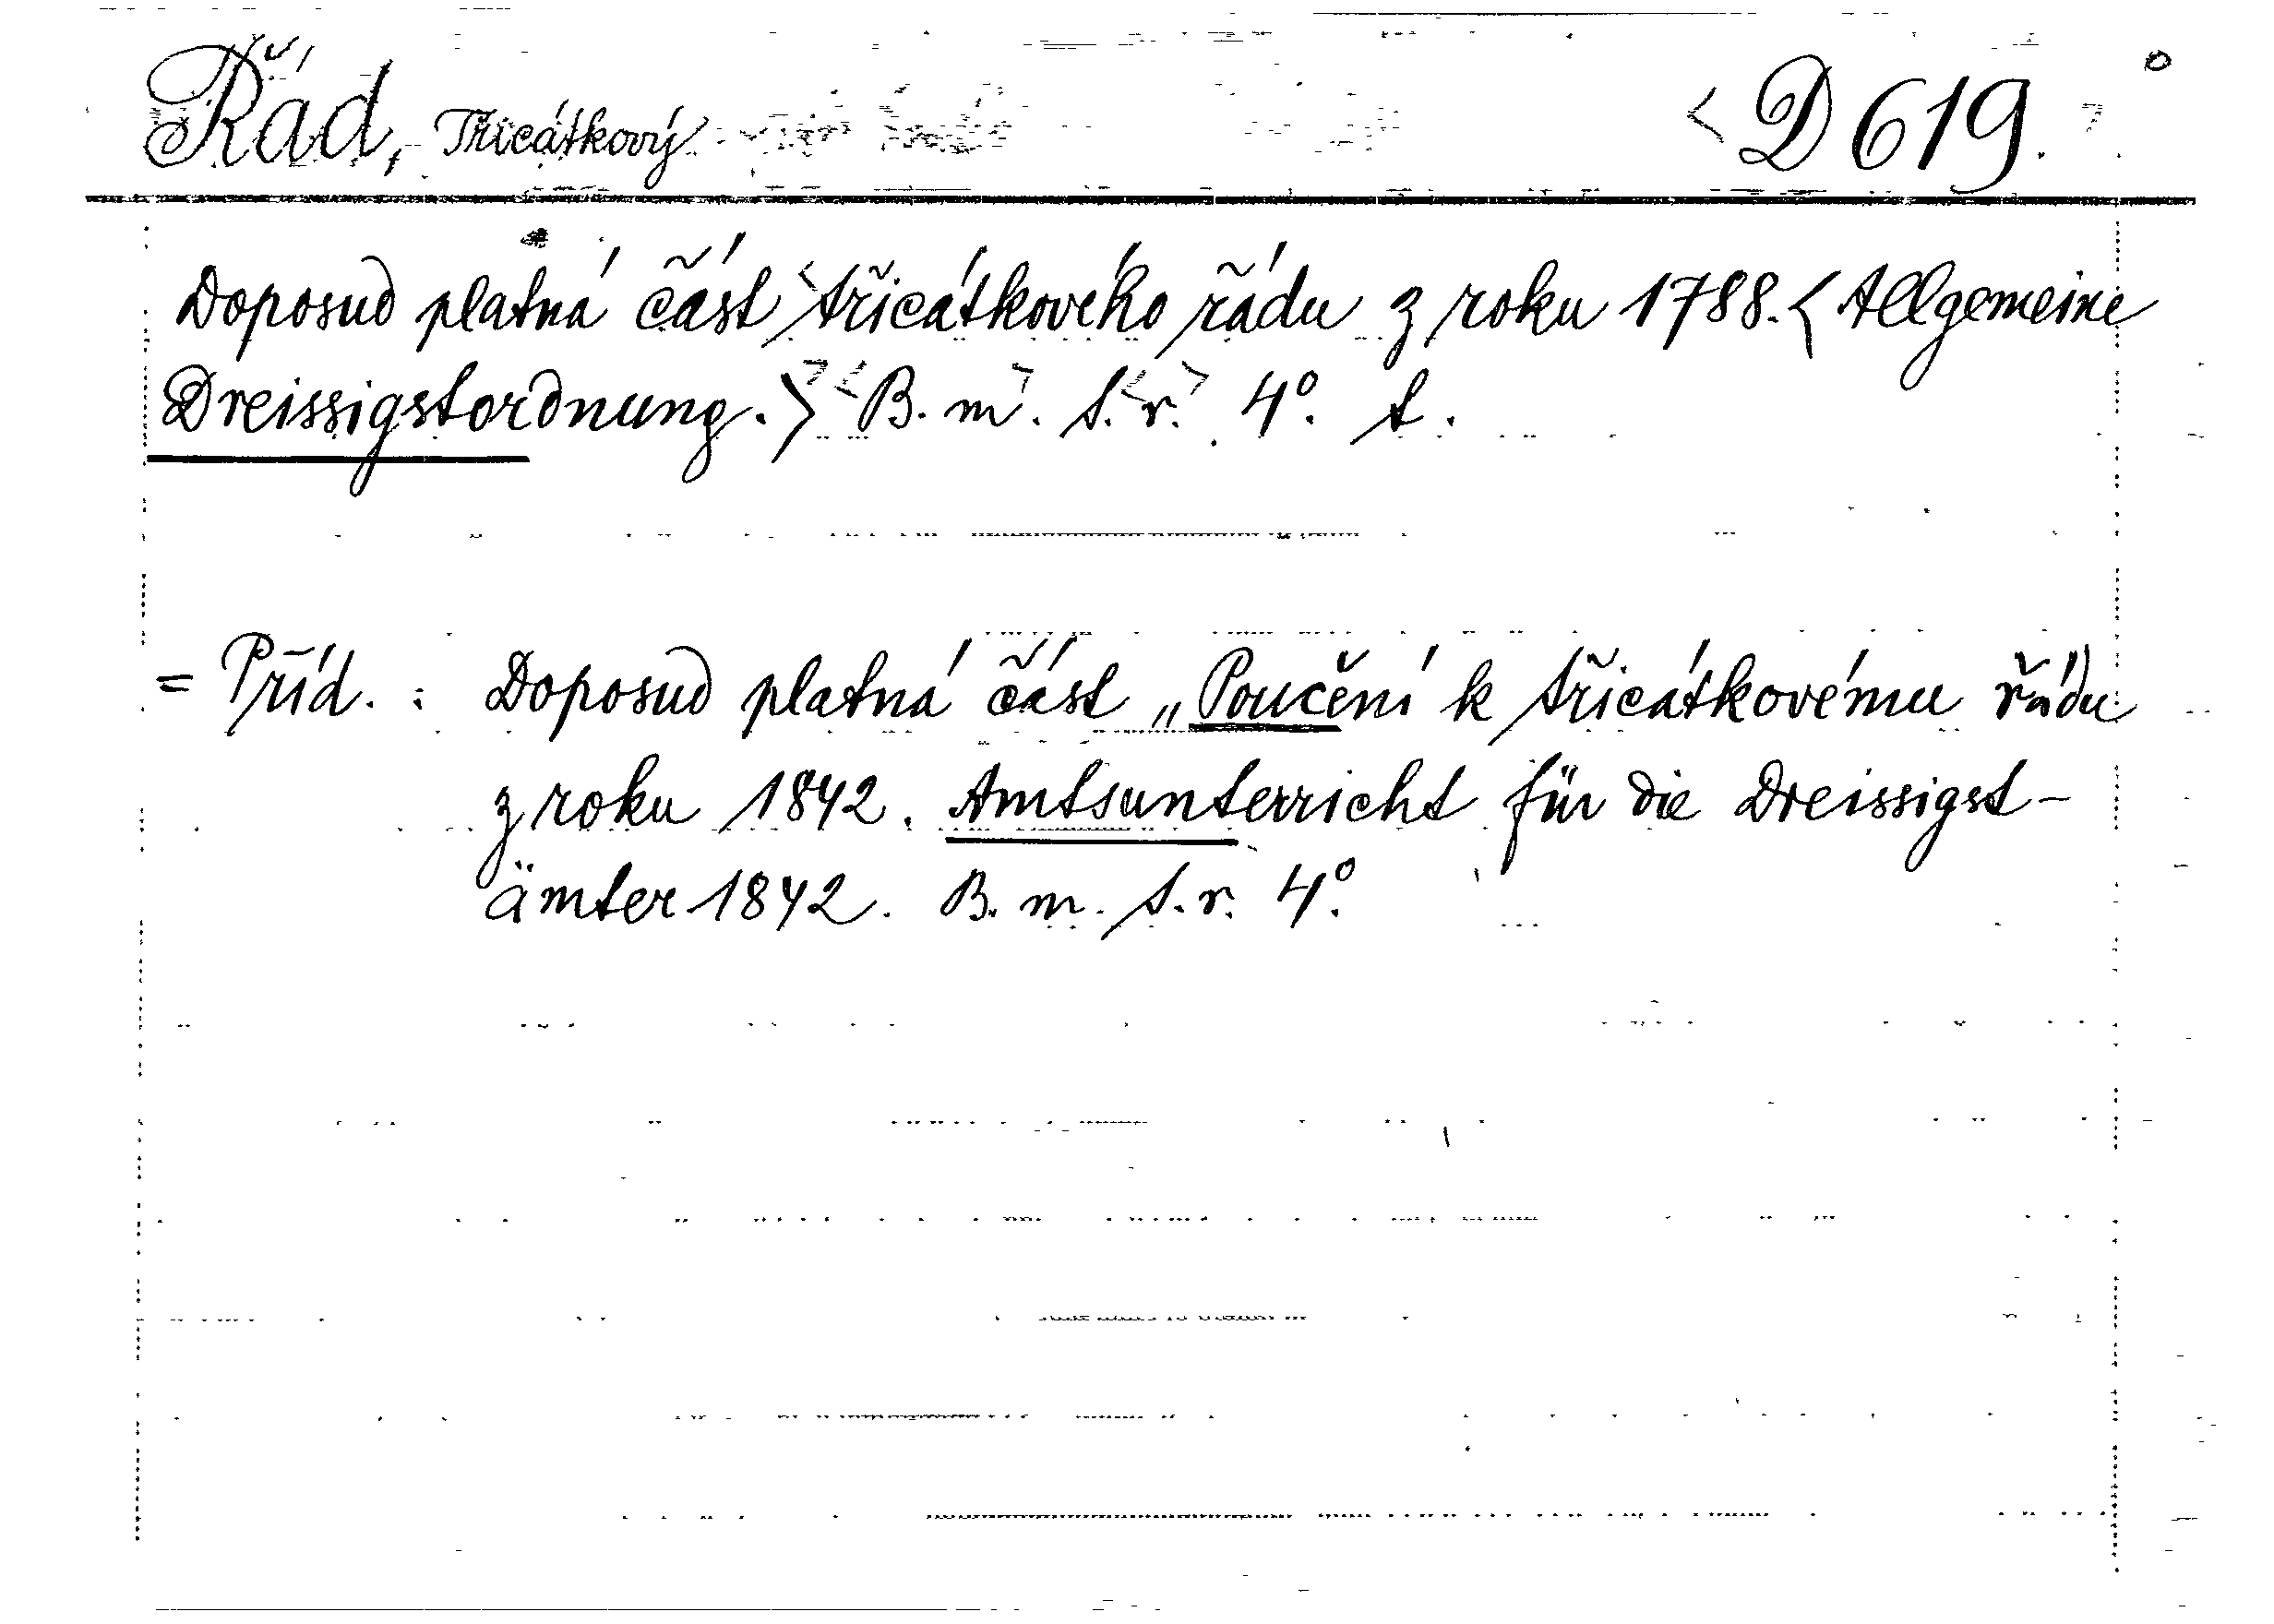 Řád, Třicátkový <D 619.>
Doposud platná část třicátkového řádu z roku 1788. <Allgemeine
Dreissigstordnung.> <B. m>. S. <r.> 4°. t.
= Příd. : Doposud platná část „Poučení k třicátkovému řádu
z roku 1842. Amtsunterricht für die Dreissigst-
ämter 1842. B. m. S. r. 4°.